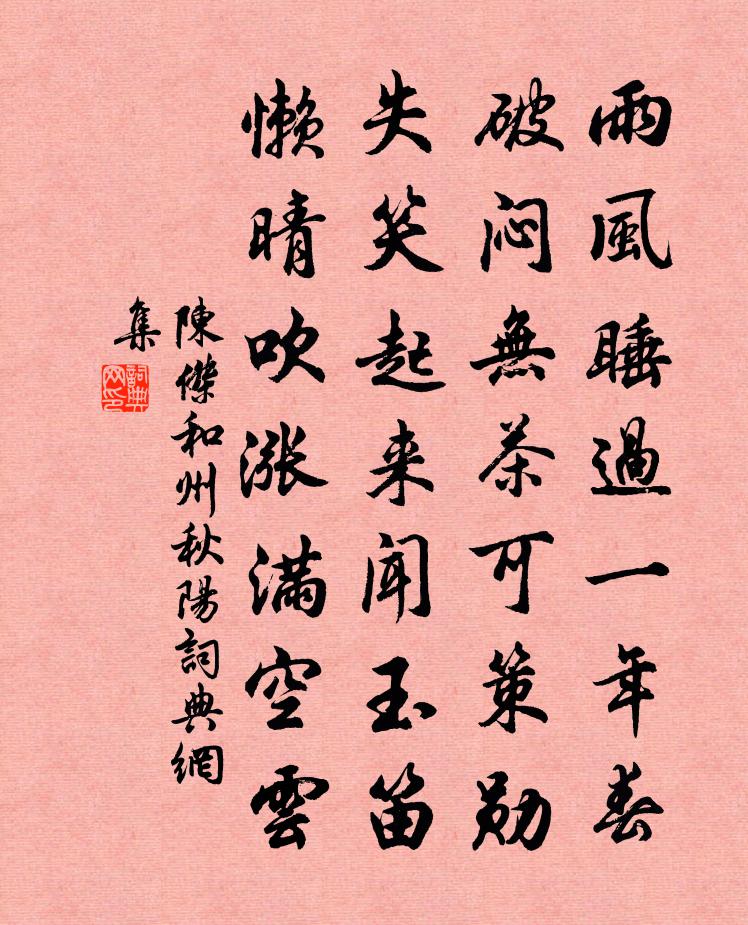 雨風睡過一年春
破悶無茶可策勛
失笑起来聞玉笛
懶晴吹漲滿空雲
陳傑和州秋陽詞典網
集
詞典網印